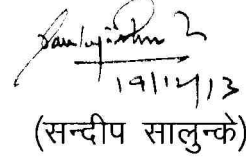 19/12/13
(सन्दीप सालुन्के)